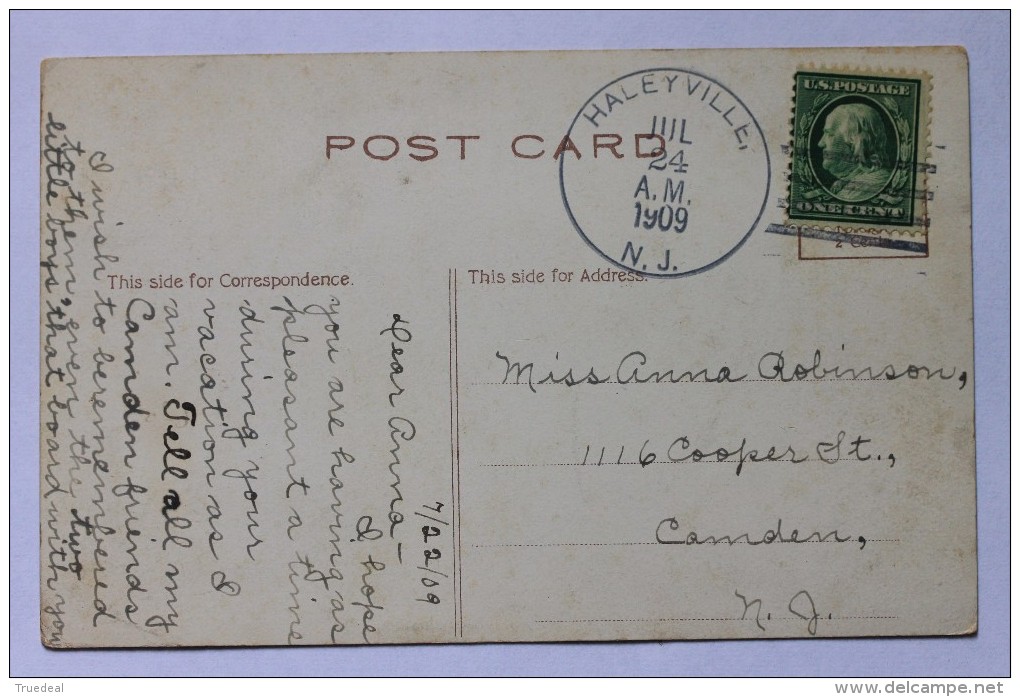 POST CARD
HALEYVILLE,
JUL
24
A.M.
1909
N. J.
U.S. POSTAGE
ONE CENT
This side for Correspondence.
This side for Address.
7/22/09
Dear Anna-
I hope
you are having as
pleasant a time
during your
vacation as I
am. Tell all my
Camden friends
I wish to be remembered
to them, even the two
little boys that board with you
Miss Anna Robinson,
1116 Cooper St.,
Camden,
N. J.
Truedeal
delcampe.net